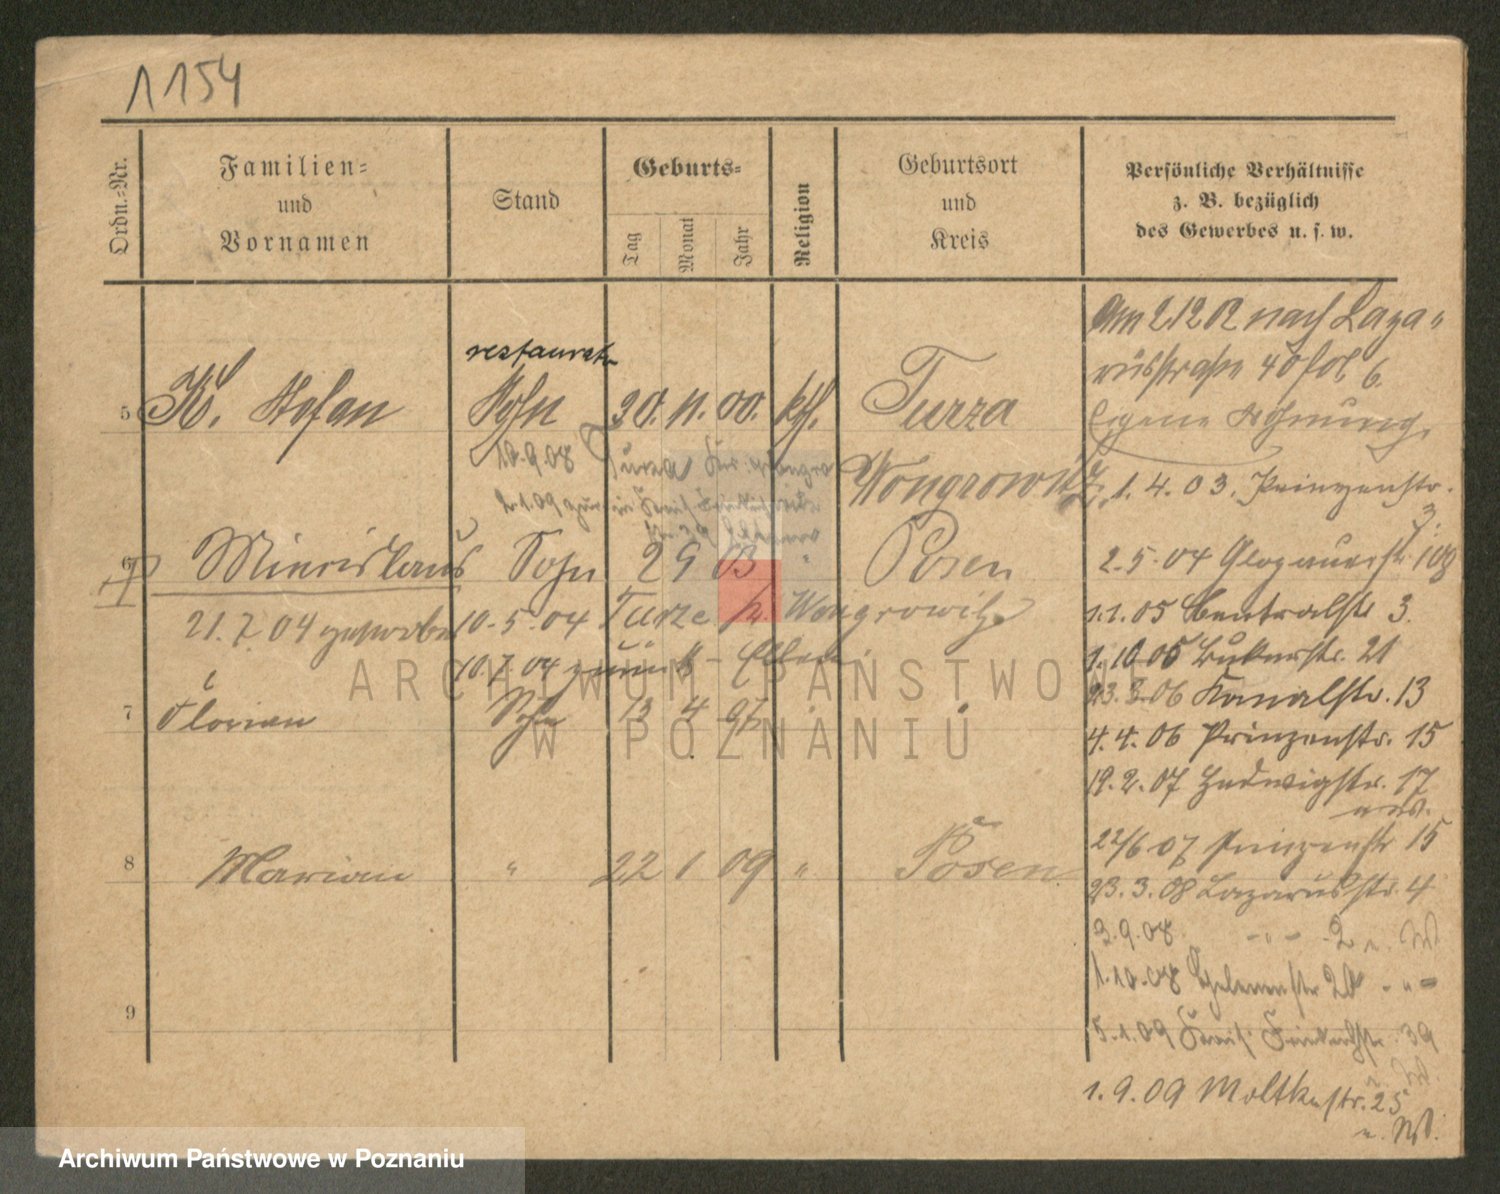 1154
Ordn.-Nr.
Familien-
und
Vornamen
Stand
Geburts-
Tag
Monat
Jahr
Religion
Geburtsort
und
Kreis
Persönliche Verhältnisse
z. B. bezüglich
des Gewerbes u. s. w.
Am 2 12 02 nach Laza-
russtraße 40 fol. 6.
Eigene Wohnung.
5 K. Stefan Sohn 30. 11. 00. kth. Turza
Wongrowitz
1. 4. 03. Prinzenstr.
7.
10.9.08 Turza Kr. Wongro
2.1.09
6 Miecislaus Sohn 2 9 03 " Posen
2.5.04 Glogauerstr 108
21.7.04 gestorben 10.5.04 Turze Kr. Wongrowitz
1.1.05 Centralstr 3.
10.7.04 zurück - Eltern
1.10.05 Bukerstr. 21
23.3.06 Kanalstr. 13
7 Florian Sohn 13 4 97 " "
4.4.06 Prinzenstr. 15
19.2.07 Hedwigstr. 17
22/6 07 Prinzenstr 15
8 Marian " 22 1 09 " Posen
23.3.08 Lazarusstr. 4
3.9.08 - " - 2 u. W
1.10.08 Helenenstr 20 - " -
9
5.1.09 Kais. Friedrichstr. 39
u. W.
1.9.09 Moltkestr. 25
u. W.
ARCHIWUM PAŃSTWOWE
W POZNANIU
Archiwum Państwowe w Poznaniu